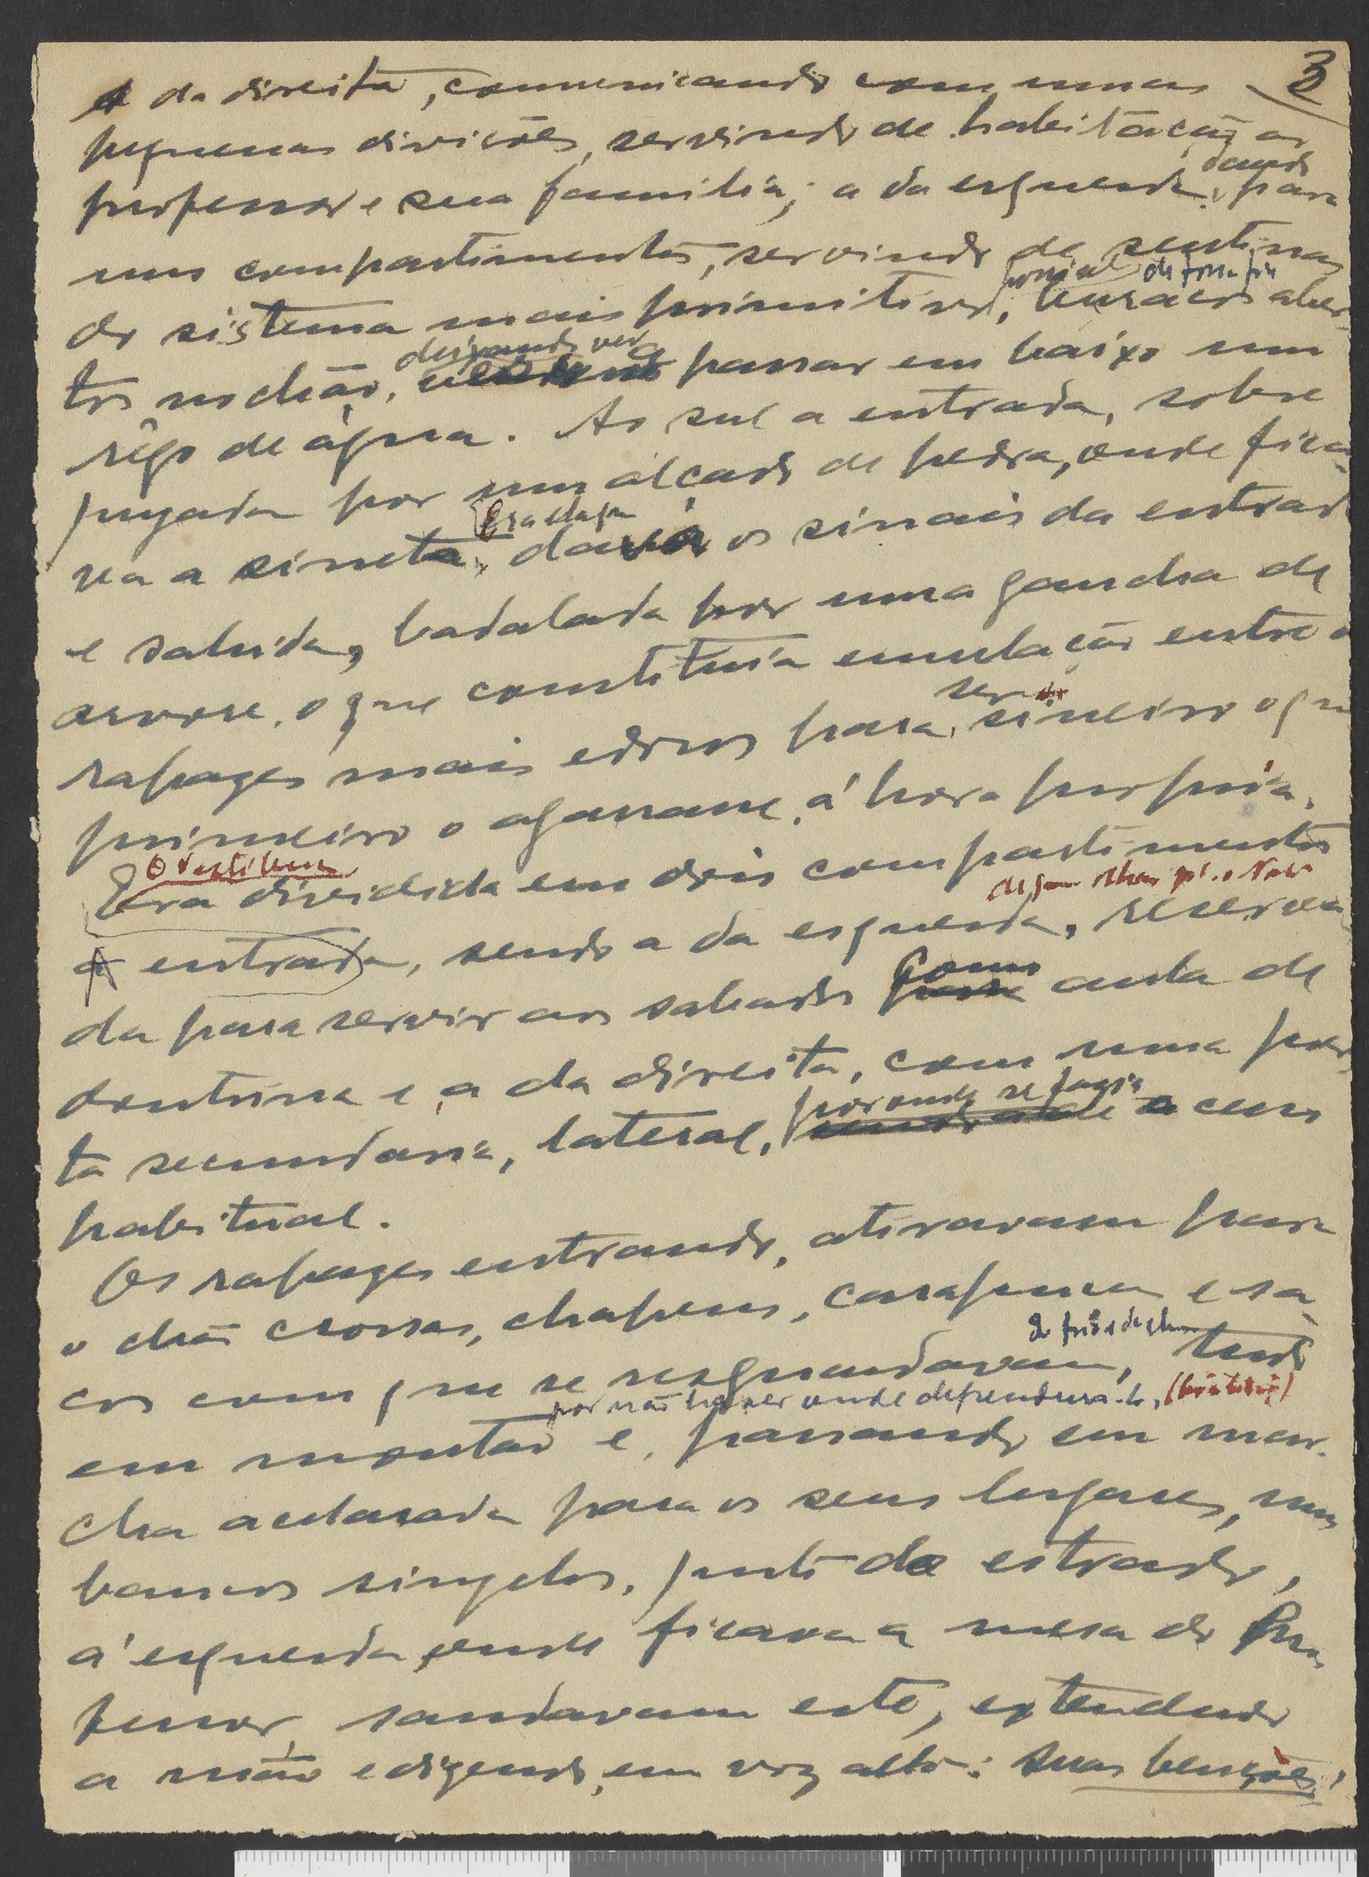 3
A da direita, comunicando com umas
pequenas divisões, servindo de habitação ao
professor e sua familia; a da esquerda, dando para
uns compartimentos, servindo de sentinas
do sistema mais primitivo, buracos aber-
tos no chão, deixando ver a passar em baixo um
rêgo de água. Ao sul a entrada, sobre
puxada por um alçado de pedra, onde fica-
va a sineta, dava os sinais da entrada
e sahida, badalada por uma gancha de
arvore, o que constituia emulação entre os
rapazes mais edosos para ser sineiro o que
primeiro o agarrasse á hora propria.
O vestibulo
Era dividida em dois compartimentos
A entrada, sendo a da esquerda, reserva-
da para servir aos sabados como aula de
doutrina e a da direita, com uma por-
ta secundaria, lateral, por onde se fazia o
habitual.
Os rapazes entrando, atiravam para
o chão croças, chapeus, carapuças e sa-
cos com que se resguardavam, tudo
por não haver onde dependura-lo,
em montão e, passando em mar-
cha acelarada para os seus lugares, nuns
bancos singelos, junto do estrado,
á esquerda, onde ficava a mesa do Pro-
fessor, saudavam este, extendendo
a mão e dizendo, em voz alta: Suas bençoes,